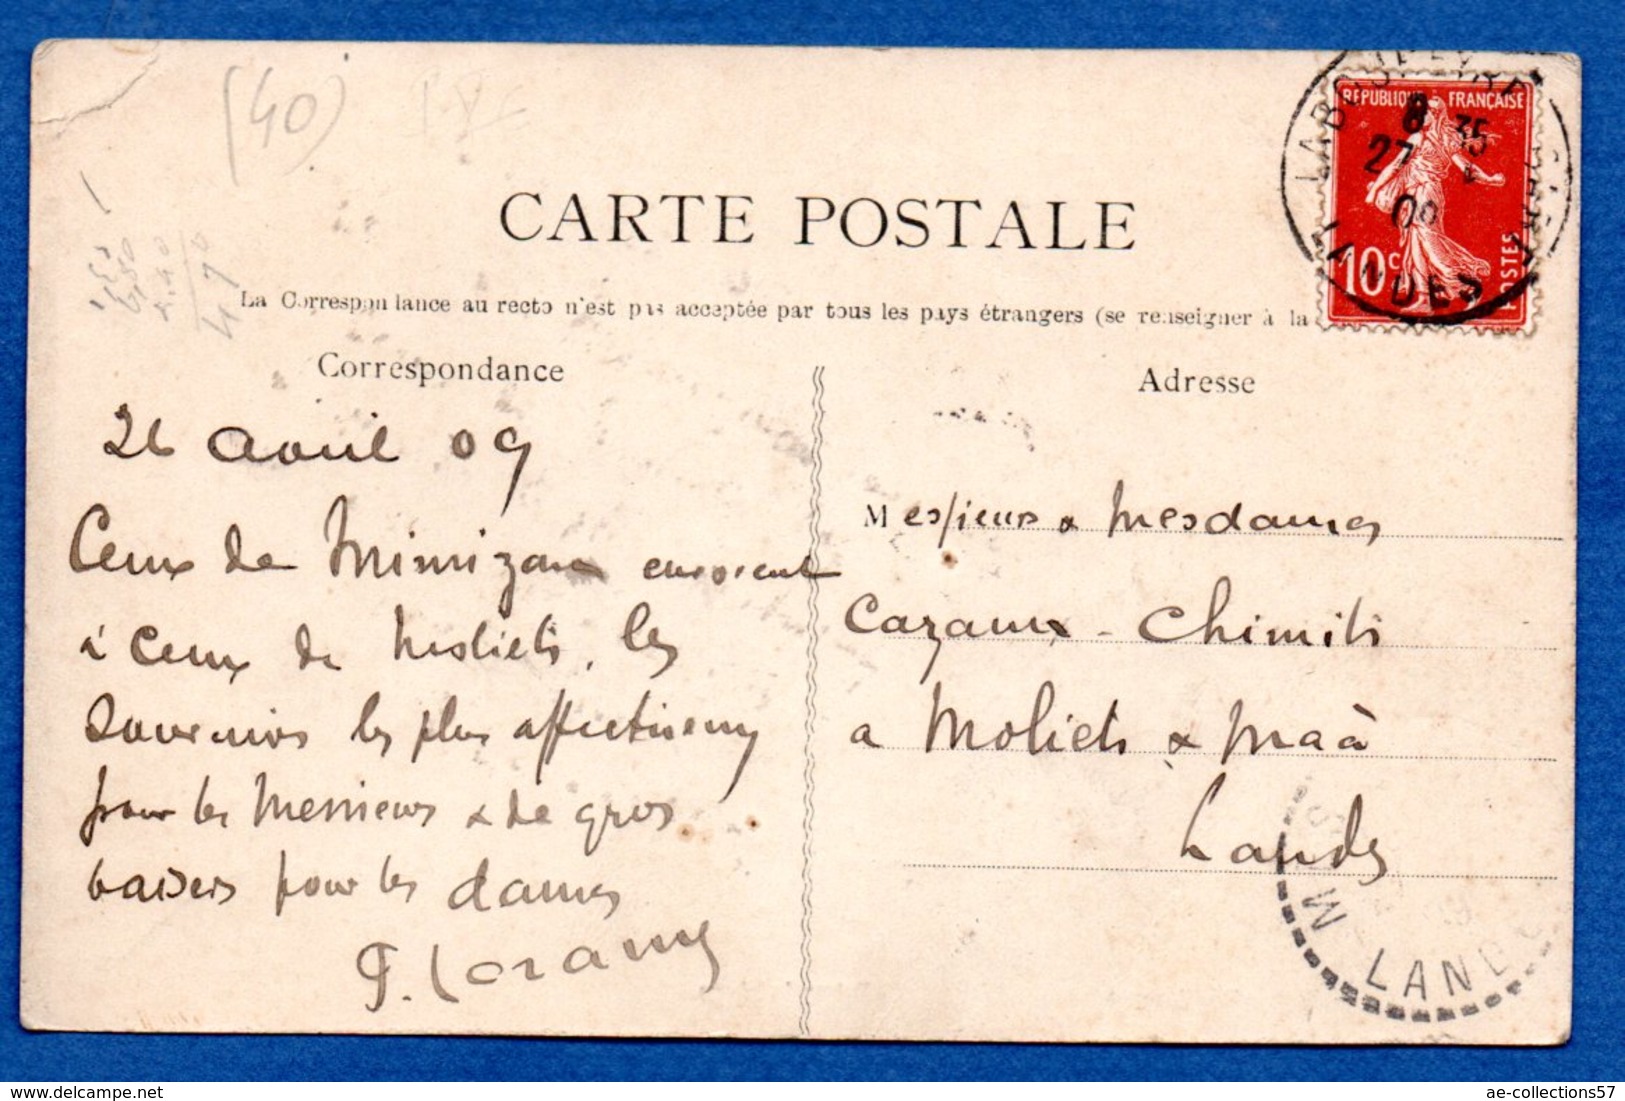 (40)
CARTE POSTALE
La Correspondance au recto n'est pas acceptée par tous les pays étrangers (se renseigner à la
Correspondance
Adresse
RÉPUBLIQUE FRANÇAISE
10c
POSTES
8 35
27 4
09
LANDES
26 avril 09
Ceux de Mimizan envoient
à ceux de Moliets, les
souvenirs les plus affectueux
pour les Messieurs & de gros
baisers pour les dames
Messieurs & Mesdames
Cazaux - Chimits
a Moliets & Maà
Landes
LANDES
ae-collections57